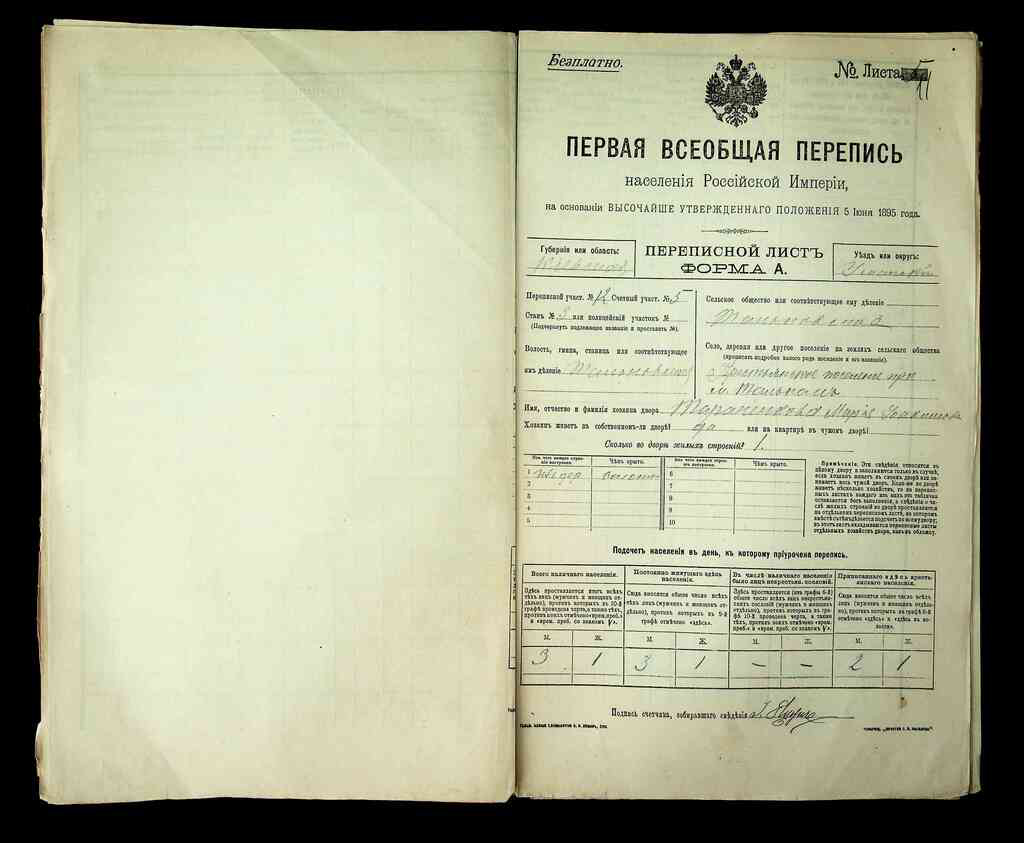 Безплатно.
№ Листа 11
ПЕРВАЯ ВСЕОБЩАЯ ПЕРЕПИСЬ
населенія Россійской Имперіи,
на основаніи ВЫСОЧАЙШЕ УТВЕРЖДЕННАГО ПОЛОЖЕНІЯ 5 Іюня 1895 года.
Губернія или область:
Кіевская
ПЕРЕПИСНОЙ ЛИСТЪ
ФОРМА А.
Уѣздъ или округъ:
Уманскій
Переписной участ. № 12 Счетный участ. № 5
Станъ № 3 или полицейскій участокъ №
(Подчеркнуть надлежащее названіе и проставить №).
Волость, гмина, станица или соотвѣтствующее
имъ дѣленіе Тальновская
Сельское общество или соотвѣтствующее ему дѣленіе
Тальновское
Село, деревня или другое поселеніе на земляхъ сельскаго общества
(прописать подробно какого рода поселеніе и его названіе).
Крестьянское поселеніе при
м. Тальномъ
Имя, отчество и фамилія хозяина двора Марія
Хозяинъ живетъ въ собственномъ-ли дворѣ? да или на квартирѣ въ чужомъ дворѣ?
Сколько во дворѣ жилыхъ строеній? 1.
Изъ чего каждое строеніе построено.
Чѣмъ крыто.
Изъ чего каждое строеніе построено.
Чѣмъ крыто.
1 соломой
2
3
4
5
6
7
8
9
10
Примѣчаніе. Эти свѣдѣнія относятся къ
цѣлому двору и заполняются только въ случаѣ,
если хозяинъ живетъ въ своемъ дворѣ или занимаетъ
весь чужой дворъ. Если-же во дворѣ
живетъ нѣсколько хозяйствъ, то на переписныхъ
листахъ каждаго изъ нихъ эта табличка
оставляется безъ заполненія, а свѣдѣнія о числѣ
жилыхъ строеній во дворѣ проставляются
на отдѣльномъ переписномъ листѣ, на которомъ
вмѣстѣ съ тѣмъ дѣлается подсчетъ по всему двору;
въ этотъ листъ вкладываются переписные листы
отдѣльныхъ хозяйствъ двора, какъ въ обложку.
Подсчетъ населенія въ день, къ которому пріурочена перепись.
Всего наличнаго населенія.
Постоянно живущаго здѣсь населенія.
Въ числѣ наличнаго населенія было лицъ некрестьян. сословій.
Приписаннаго здѣсь крестьянскаго населенія.
Здѣсь проставляется итогъ всѣхъ
тѣхъ лицъ (мужчинъ и женщинъ отдѣльно),
противъ которыхъ въ 10-й
графѣ проведена черта, а также тѣхъ,
противъ коихъ отмѣчено «врем. преб.»
и «врем. преб. со знакомъ V».
Сюда вносится общее число всѣхъ
тѣхъ лицъ (мужчинъ и женщинъ отдѣльно),
противъ которыхъ въ 9-й
графѣ отмѣчено «здѣсь».
Здѣсь проставляется (изъ графы 6-й)
общее число всѣхъ лицъ некрестьянскихъ
сословій (мужчинъ и женщинъ
отдѣльно), противъ которыхъ въ графѣ
10-й проведена черта, а также
тѣхъ, противъ коихъ отмѣчено «врем.
преб.» и «врем. преб. со знакомъ V».
Сюда вносится общее число всѣхъ
лицъ (мужчинъ и женщинъ отдѣльно),
противъ которыхъ въ графѣ 8-й
отмѣчено «здѣсь» и «здѣсь въ волости».
М. Ж. М. Ж. М. Ж. М. Ж.
3 1 3 1 – – 2 1
Подпись счетчика, собиравшаго свѣдѣнія